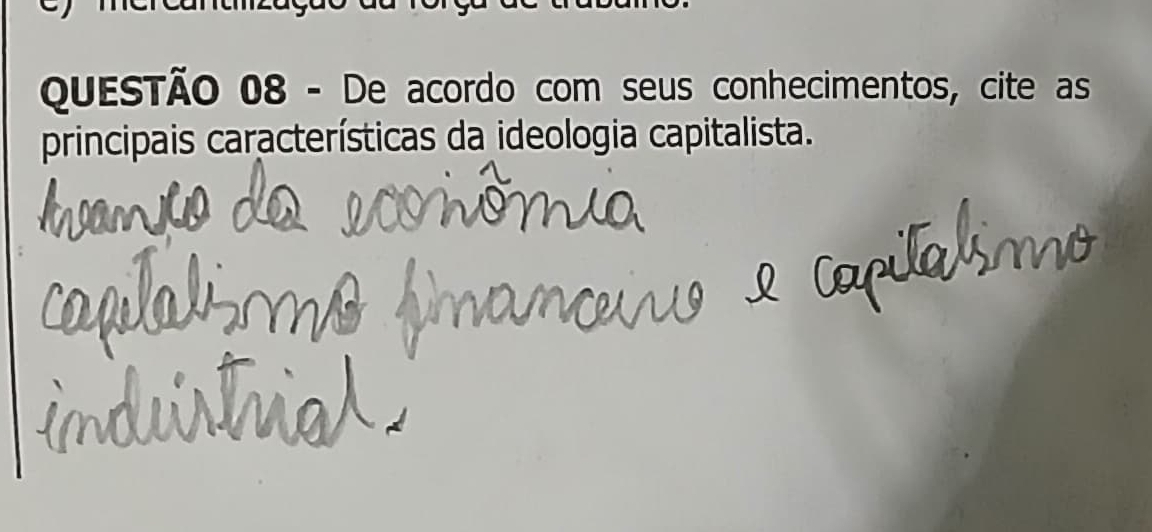 e) mercantilização da força de trabalho.
QUESTÃO 08 - De acordo com seus conhecimentos, cite as
principais características da ideologia capitalista.
da econômia
capitalismo financeiro e capitalismo
industrial.